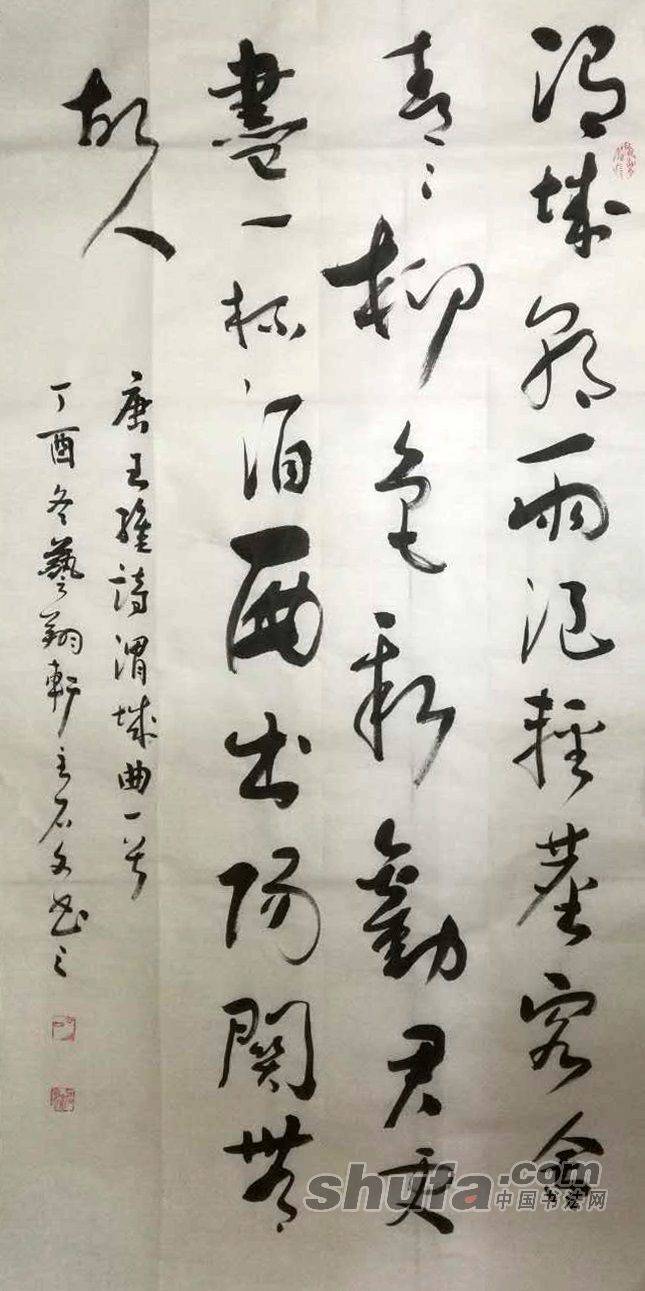 渭城朝雨浥輕塵客舍
青〻柳色新勸君更
盡一杯酒西出陽關無
故人
唐王維詩渭城曲一首
丁酉冬藝翔軒主石文書之
shufa.com
中国书法网